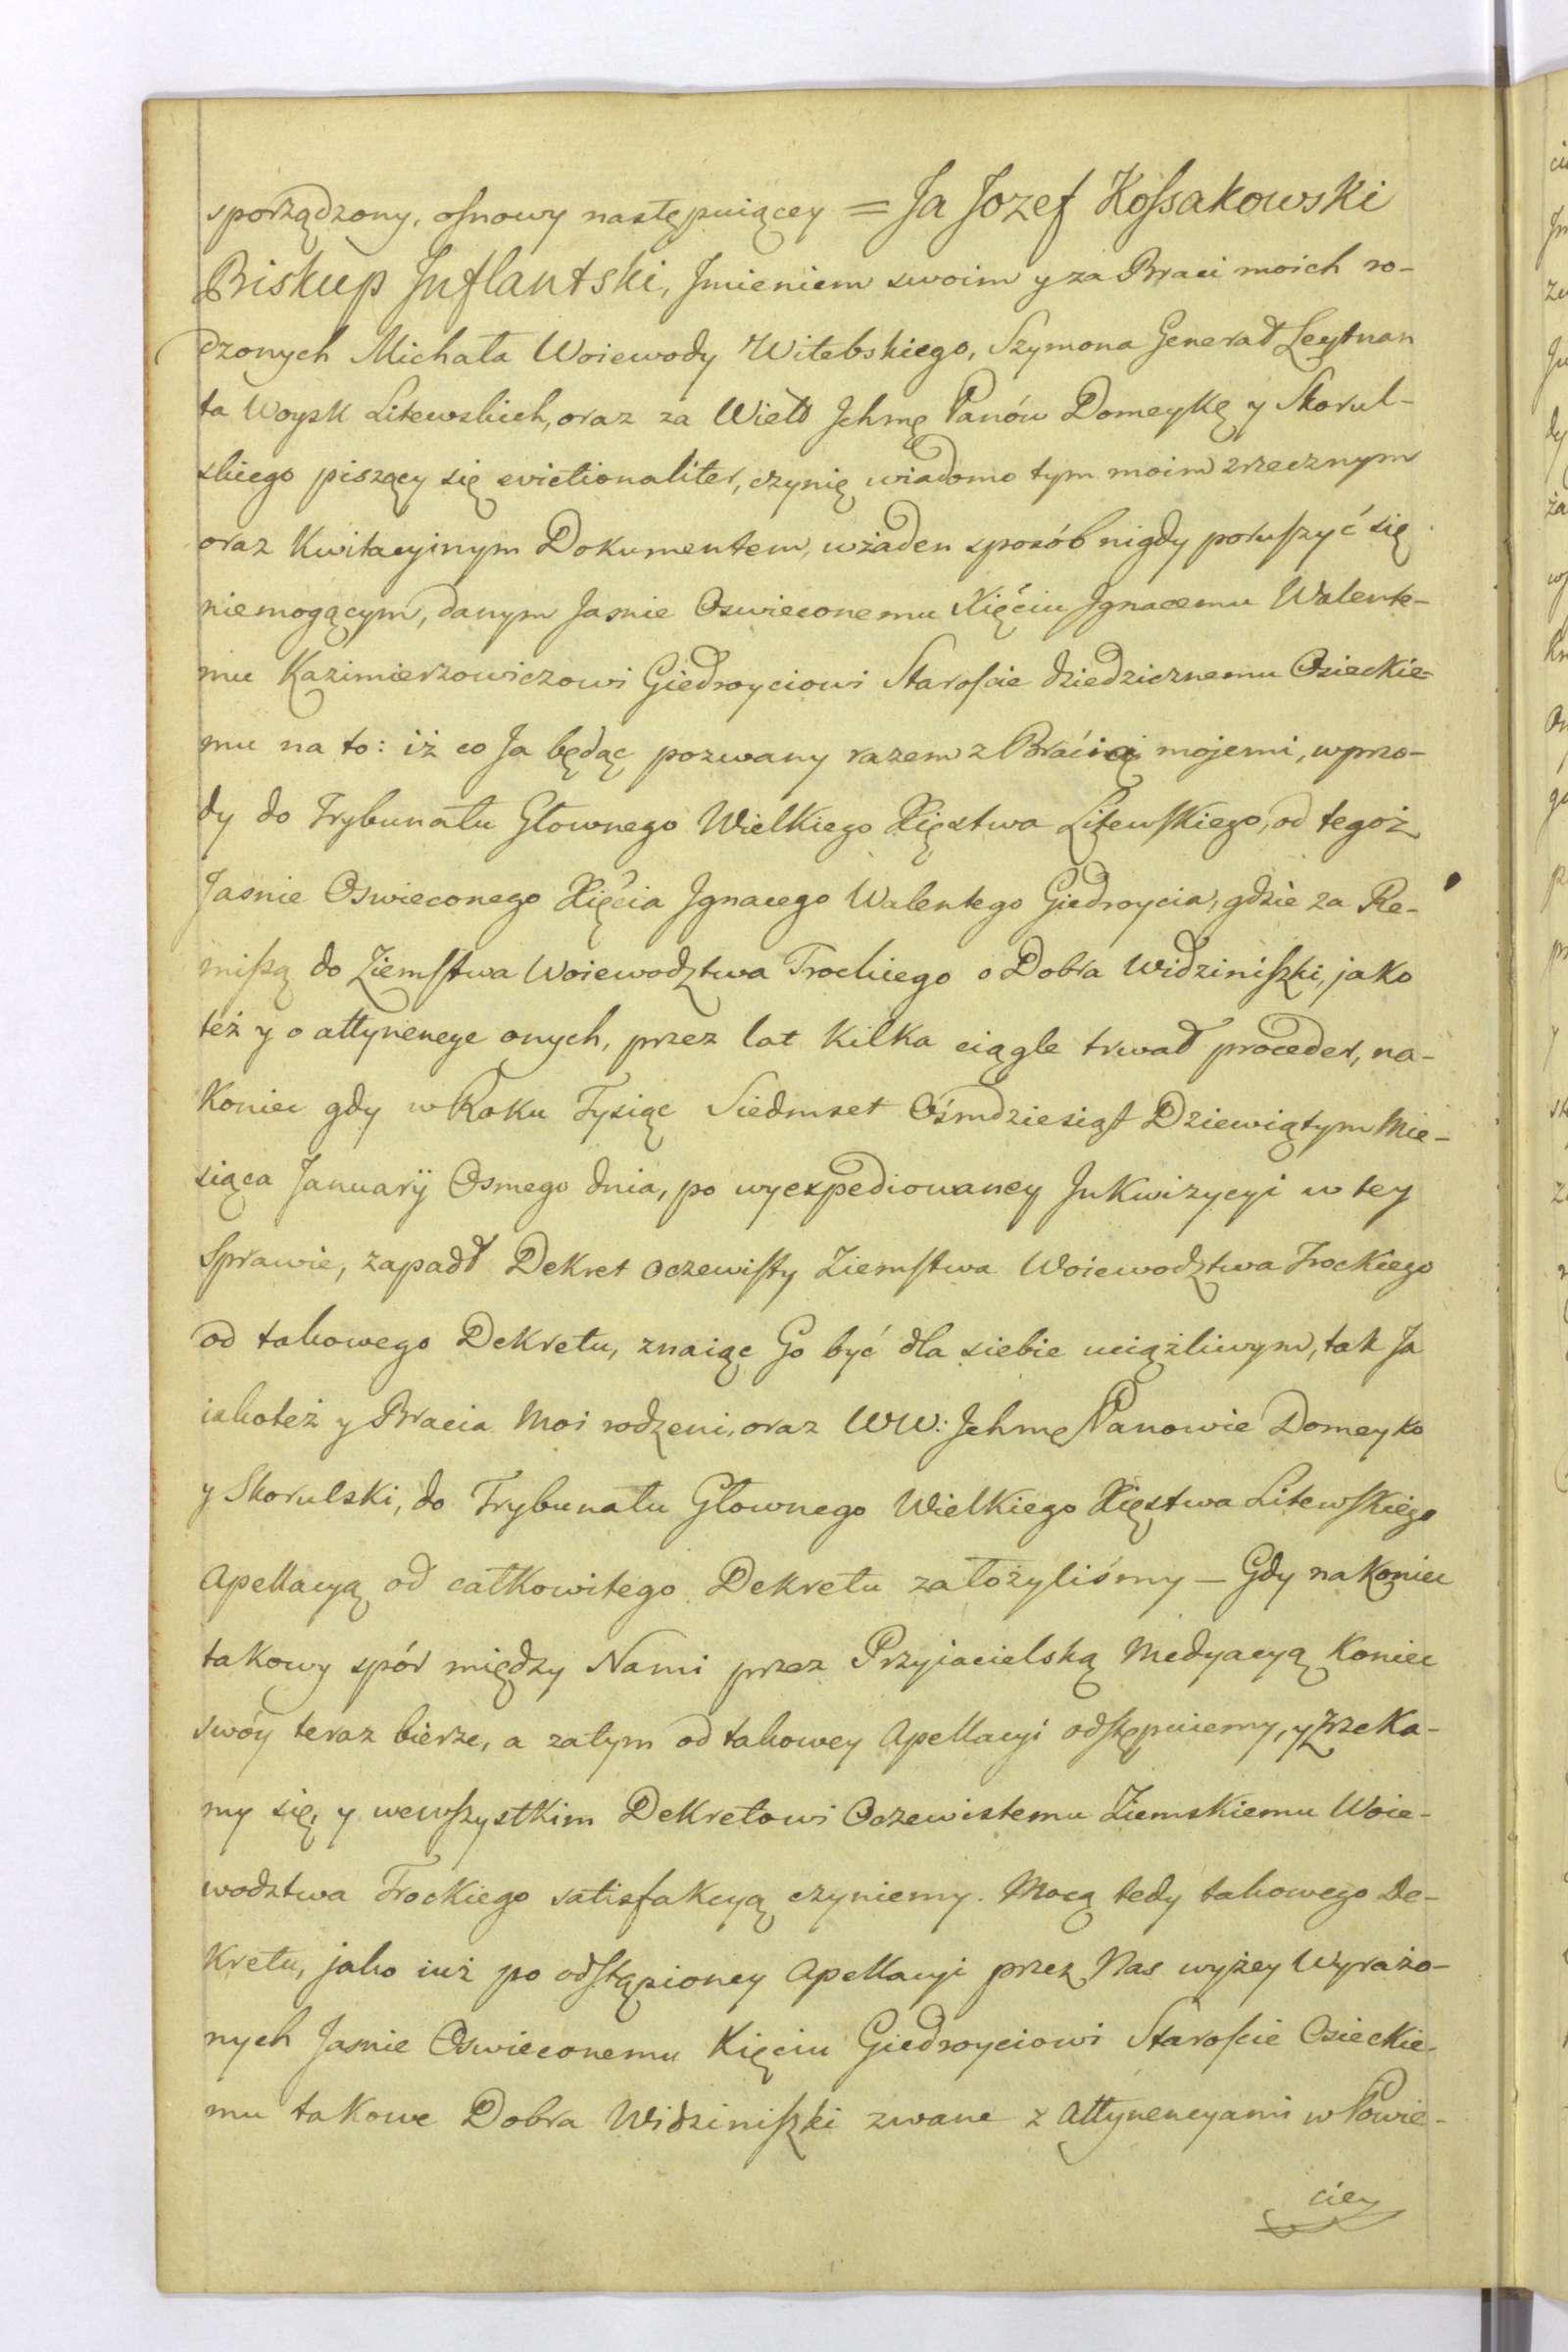 sporządzony, osnowy następuiącey = Ja Jozef Kossakowski
Biskup Inflantski, Imieniem swoim y za Braci moich ro-
dzonych Michała Woiewody Witebskiego, Szymona Generał Leytnan
ta Woysk Litewskich, oraz za Wiel. Ichmę Panów Domeykę y Skorul-
skiego piszący się evictionaliter, czynię wiadomo tym moim zrzecznym
oraz Kwitacyinym Dokumentem, wżaden sposób nigdy poruszyć się
niemogącym, danym Jasnie Oswieconemu Xięciu Ignacemu Walente-
mu Kazimierzowiczowi Giedroyciowi Staroscie dziedzicznemu Osieckie-
mu na to: iż co Ja będąc pozwany razem z Braćią mojemi, wprzo-
dy do Trybunału Głownego Wielkiego Xięstwa Litewskiego, od tegoż
Jasnie Oswieconego Xięcia Ignacego Walentego Giedroycia, gdzie za Re-
missą do Ziemstwa Woiewodztwa Trockiego o Dobra Widziniszki, jako
też y o attynencye onych, przez lat kilka ciągle trwał proceder, na-
koniec gdy w Roku Tysiąc Siedmset Ośmdziesiąt Dziewiątym Mie-
siąca Januarij Osmego dnia, po wyexpediowaney Inkwizycyi w tey
Sprawie, zapadł Dekret oczewisty Ziemstwa Woiewodztwa Trockiego
od takowego Dekretu, znaiąc Go być dla siebie uciążliwym, tak Ja
iakoteż y Bracia Moi rodzeni, oraz WW: Ichmę Panowie Domeyko
y Skorulski, do Trybunału Głownego Wielkiego Xięstwa Litewskiego
Apellacyą od całkowitego Dekretu założyliśmy — Gdy nakoniec
takowy spór między Nami przez Przyiacielską Medyacyą Koniec
swóy teraz bierze, a zatym od takowey Apellacyi odstępuiemy, y zrzeka-
my się, y wewszystkim Dekretowi Oczewistemu Ziemskiemu Woie-
wodztwa Trockiego satisfakcyą czyniemy. Mocą tedy takowego De-
kretu, jako iuż po odstąpioney Apellacyi przez Nas wyżey wyrażo-
nych Jasnie Oswieconemu Xięciu Giedroyciowi Staroscie Osieckie-
mu takowe Dobra Widziniszki zwane z Attynencyami w Powie-
ciey